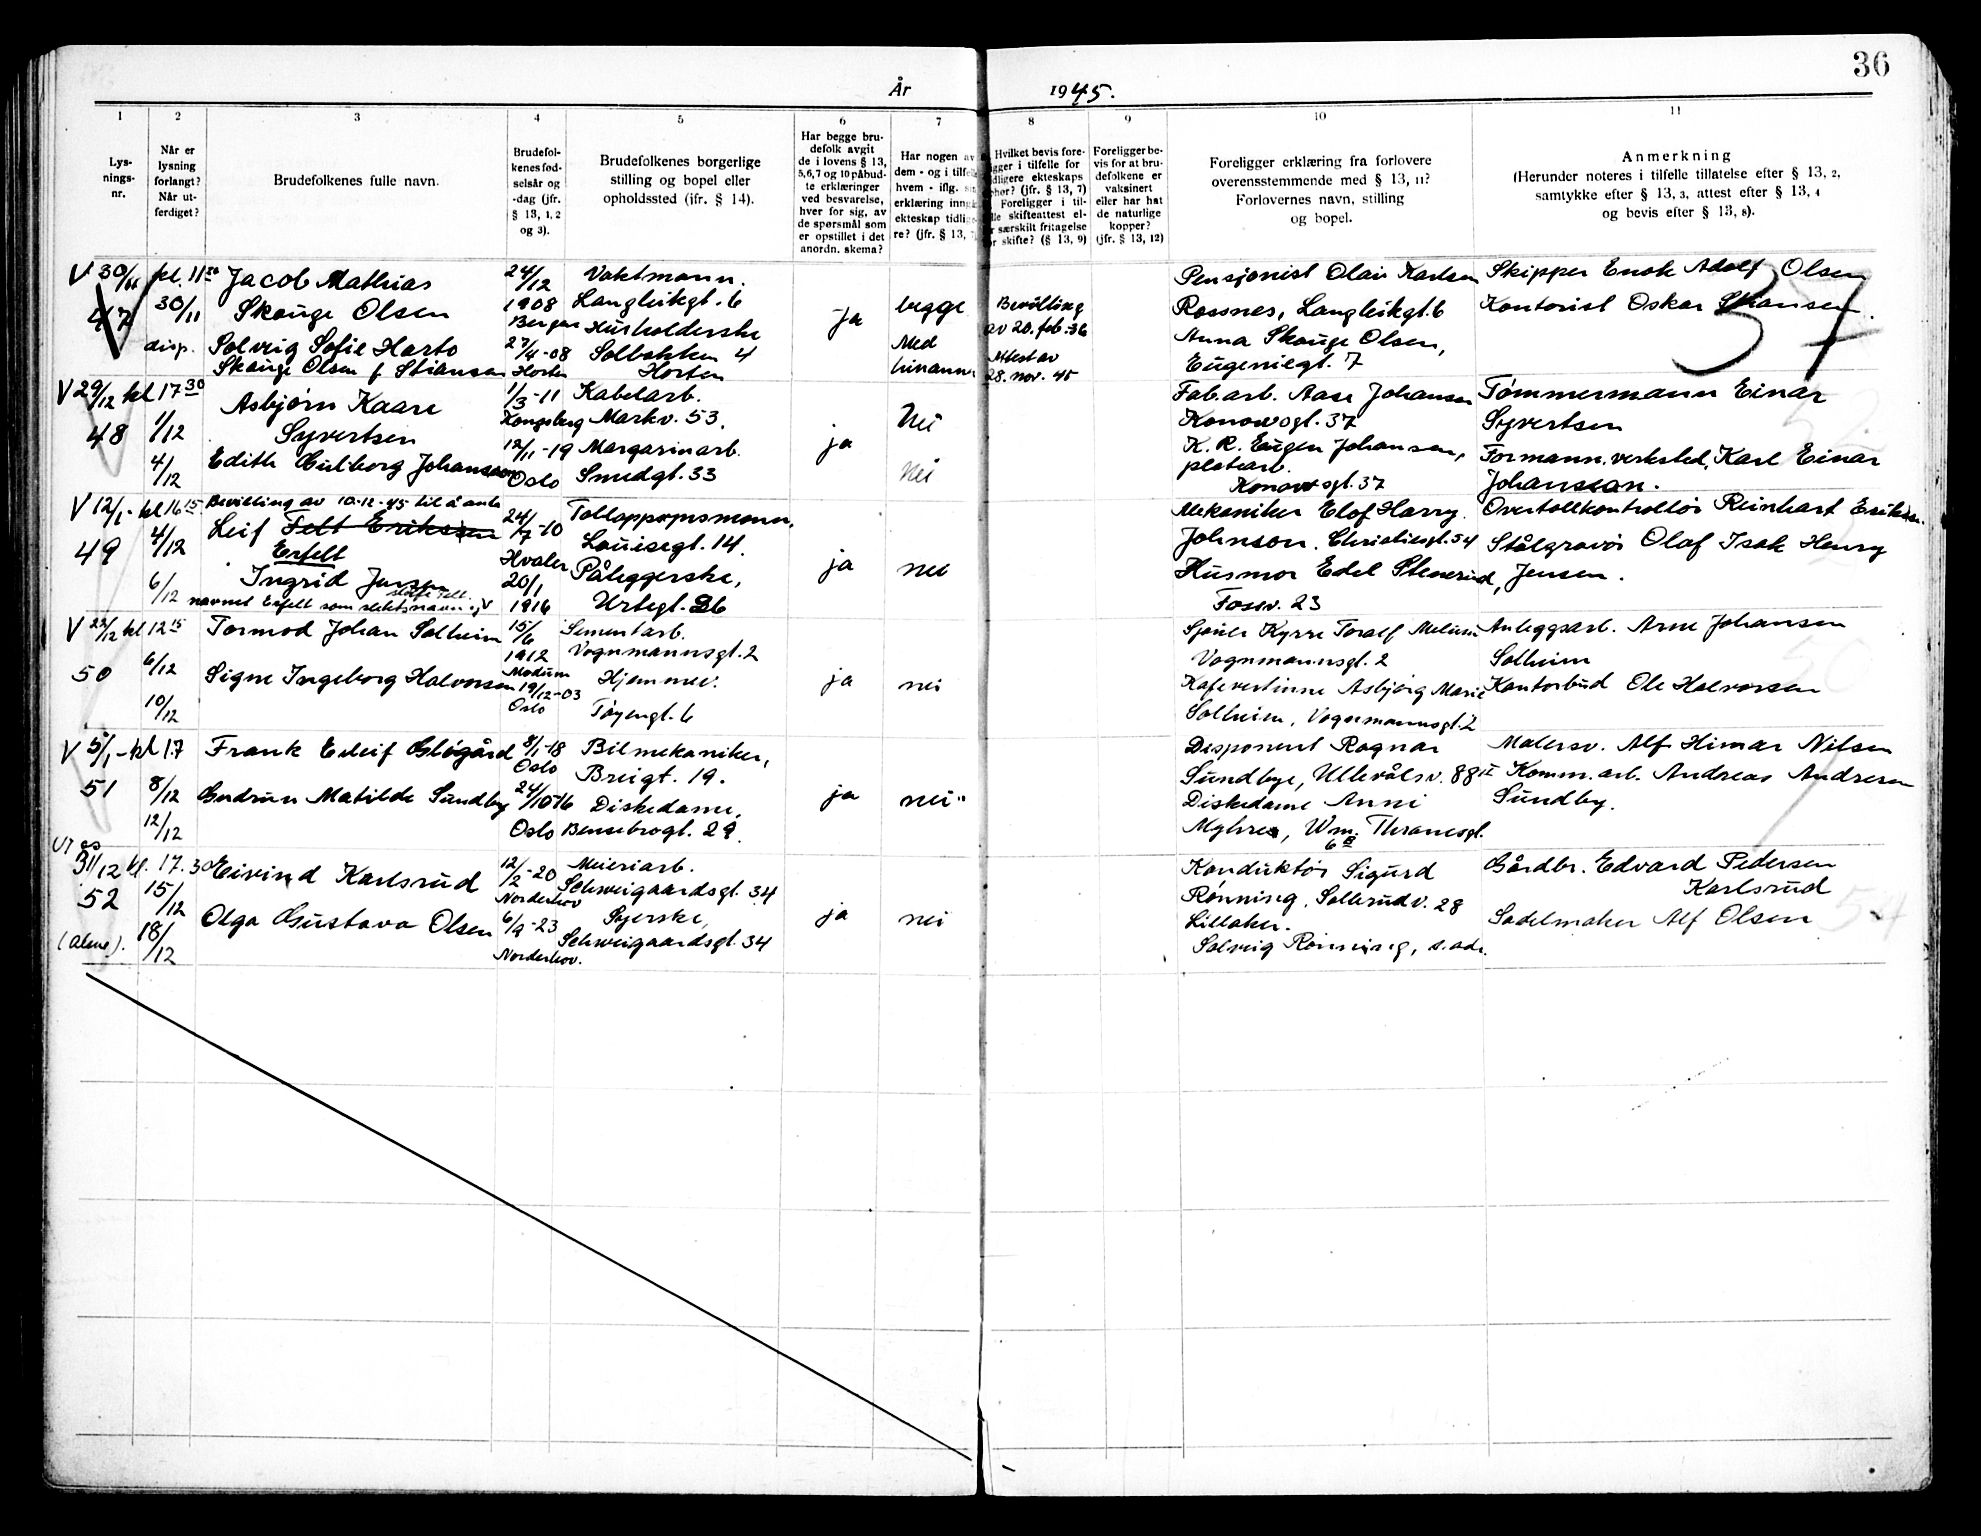 36
År 1945.
1 2 3 4 5 6 7 8 9 10 11
Lys-
nings-
nr.
Når er
lysning
forlangt?
Når ut-
ferdiget?
Brudefolkenes fulle navn.
Brudefol-
kenes fød-
selsår og
-dag (jfr.
§ 13, 1, 2
og 3).
Brudefolkenes borgerlige
stilling og bopel eller
opholdssted (ifr. § 14).
Har begge bru-
defolk avgit
de i lovens § 13,
5,6,7 og 10 påbud-
te erklæringer
ved besvarelse,
hver for sig, av
de spørsmål som
er opstillet i det
anordn. skema?
Har nogen av
dem - og i tilfelle
hvem - iflg.
erklæring inngå
ekteskap tidlige-
re? (jfr. § 13,
Hvilket bevis fore-
gger i tilfelle for
dligere ekteskaps
phør? (jfr. § 13, 7)
Foreligger i til-
lle skifteattest el-
r særskilt fritagelse
or skifte? (§ 13, 9)
Foreligger be-
vis for at bru-
defolkene er
vaksinert
eller har hat
de naturlige
kopper?
(jfr. § 13, 12)
Foreligger erklæring fra forlovere
overensstemmende med § 13, 11?
Forlovernes navn, stilling
og bopel.
Anmerkning
(Herunder noteres i tilfelle tillatelse efter § 13, 2,
samtykke efter § 13, 3, attest efter § 13, 4
og bevis efter § 13, 8).
V 30/11 kl. 11
47
30/11
disp.
Jacob Mathias
Skauge Olsen
Solveig Sofie Harto
Skauge Olsen f. Stiansen
24/12
1908
Bergen
27/4-08
Horten
Vaktmann.
Langleikgt. 6
Husholderske
Solbakken 4
Horten
Ja
begge
Med
hinannen
Bevilling
av 20. feb. 36
Attest av
28. nov. 45
Pensjonist Olav Karlsen
Rossnes, Langleikgt. 6
Anna Skauge Olsen,
Eugeniegt. 7
Skipper Enok Adolf Olsen
Kontorist Oskar Stiansen.
37
V 29/12 kl 17 30
48
1/12
4/12
Asbjørn Kaare
Syvertsen
Edith Hulborg Johansson
1/3-11
Kongsberg
12/11-19
Oslo
Kabelarb.
Markv. 53.
Margarinarb.
Smedgt. 33
ja
Nei
Nei
Fab.arb. Aase Johansen
Konowsgt. 37
K. R. Eugen Johansen,
platearb.
Konowsgt. 37
Tømmermann Einar
Syvertsen
Formann. verksted, Karl Einar
Johansson.
V 12/1 - kl 16 15
49
4/12
6/12
Bevilling av 10-12-45 til å anta
Leif Felt Eriksen
Erfelt
Ingrid Jensen
navnet Erfelt som slektsnavn
24/7-10
Hvaler
20/1
1916
Tolloppsynsmann,
Louisegt. 14.
Påleggerske,
Urtegt. 26
ja
nei
Mekaniker Elof Harry
Johnson. Christiesgt. 54
Husmor Edel Stenerud,
Fossv. 23
Overtollkontrollør Reinhart Eriksen.
Stålgravør Olaf Isak Henry
Jensen.
V 22/12 kl 12 15
50
6/12
10/12
Tormod Johan Solheim
Signe Ingeborg Halvorsen
15/6
1912
Modum
19/12-03
Oslo
Sementarb.
Vognmannsgt. 2
Hjemmev.
Tøyengt. 6
ja
nei
Sjauer Kyrre Toralf Melum
Vognmannsgt. 2
Kafevertinne Asbjørg Marie
Solheim, Vognmannsgt. 2
Anleggsarb. Arne Johansen
Solheim
Kontorbud Ole Halvorsen
V 5/1 - kl 17
51
8/12
12/12
Frank Erleif Gløgård
Gudrun Matilde Sundby
8/1-18
Oslo
24/10 16
Oslo
Bilmekaniker,
Breigt. 19.
Diskedame,
Bensebrogt. 29
ja
nei
Disponent Ragnar
Sundbye, Ullevålsv. 88 II
Diskedame Anni
Myhre, Wm. Thranesgt.
6 B
Malersv. Alf Himar Nilsen
Komm.arb. Andreas Andresen
Sundby.
31/12 kl. 17.30
52
(alene).
15/12
18/12
Eivind Karlsrud
Olga Gustava Olsen
12/2-20
Norderhov
6/9-23
Norderhov.
Meieriarb.
Schweigaardsgt. 34
Syerske,
Schweigaardsgt. 34
ja
nei
Konduktør Sigurd
Rønning, Sollerudv. 28
Lilleaker.
Solveig Rønning, s. adr.
Gårdbr. Edvard Pedersen
Karlsrud
Sadelmaker Alf Olsen